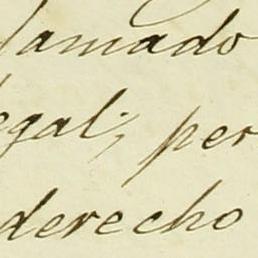 lamado
egal; per
derecho